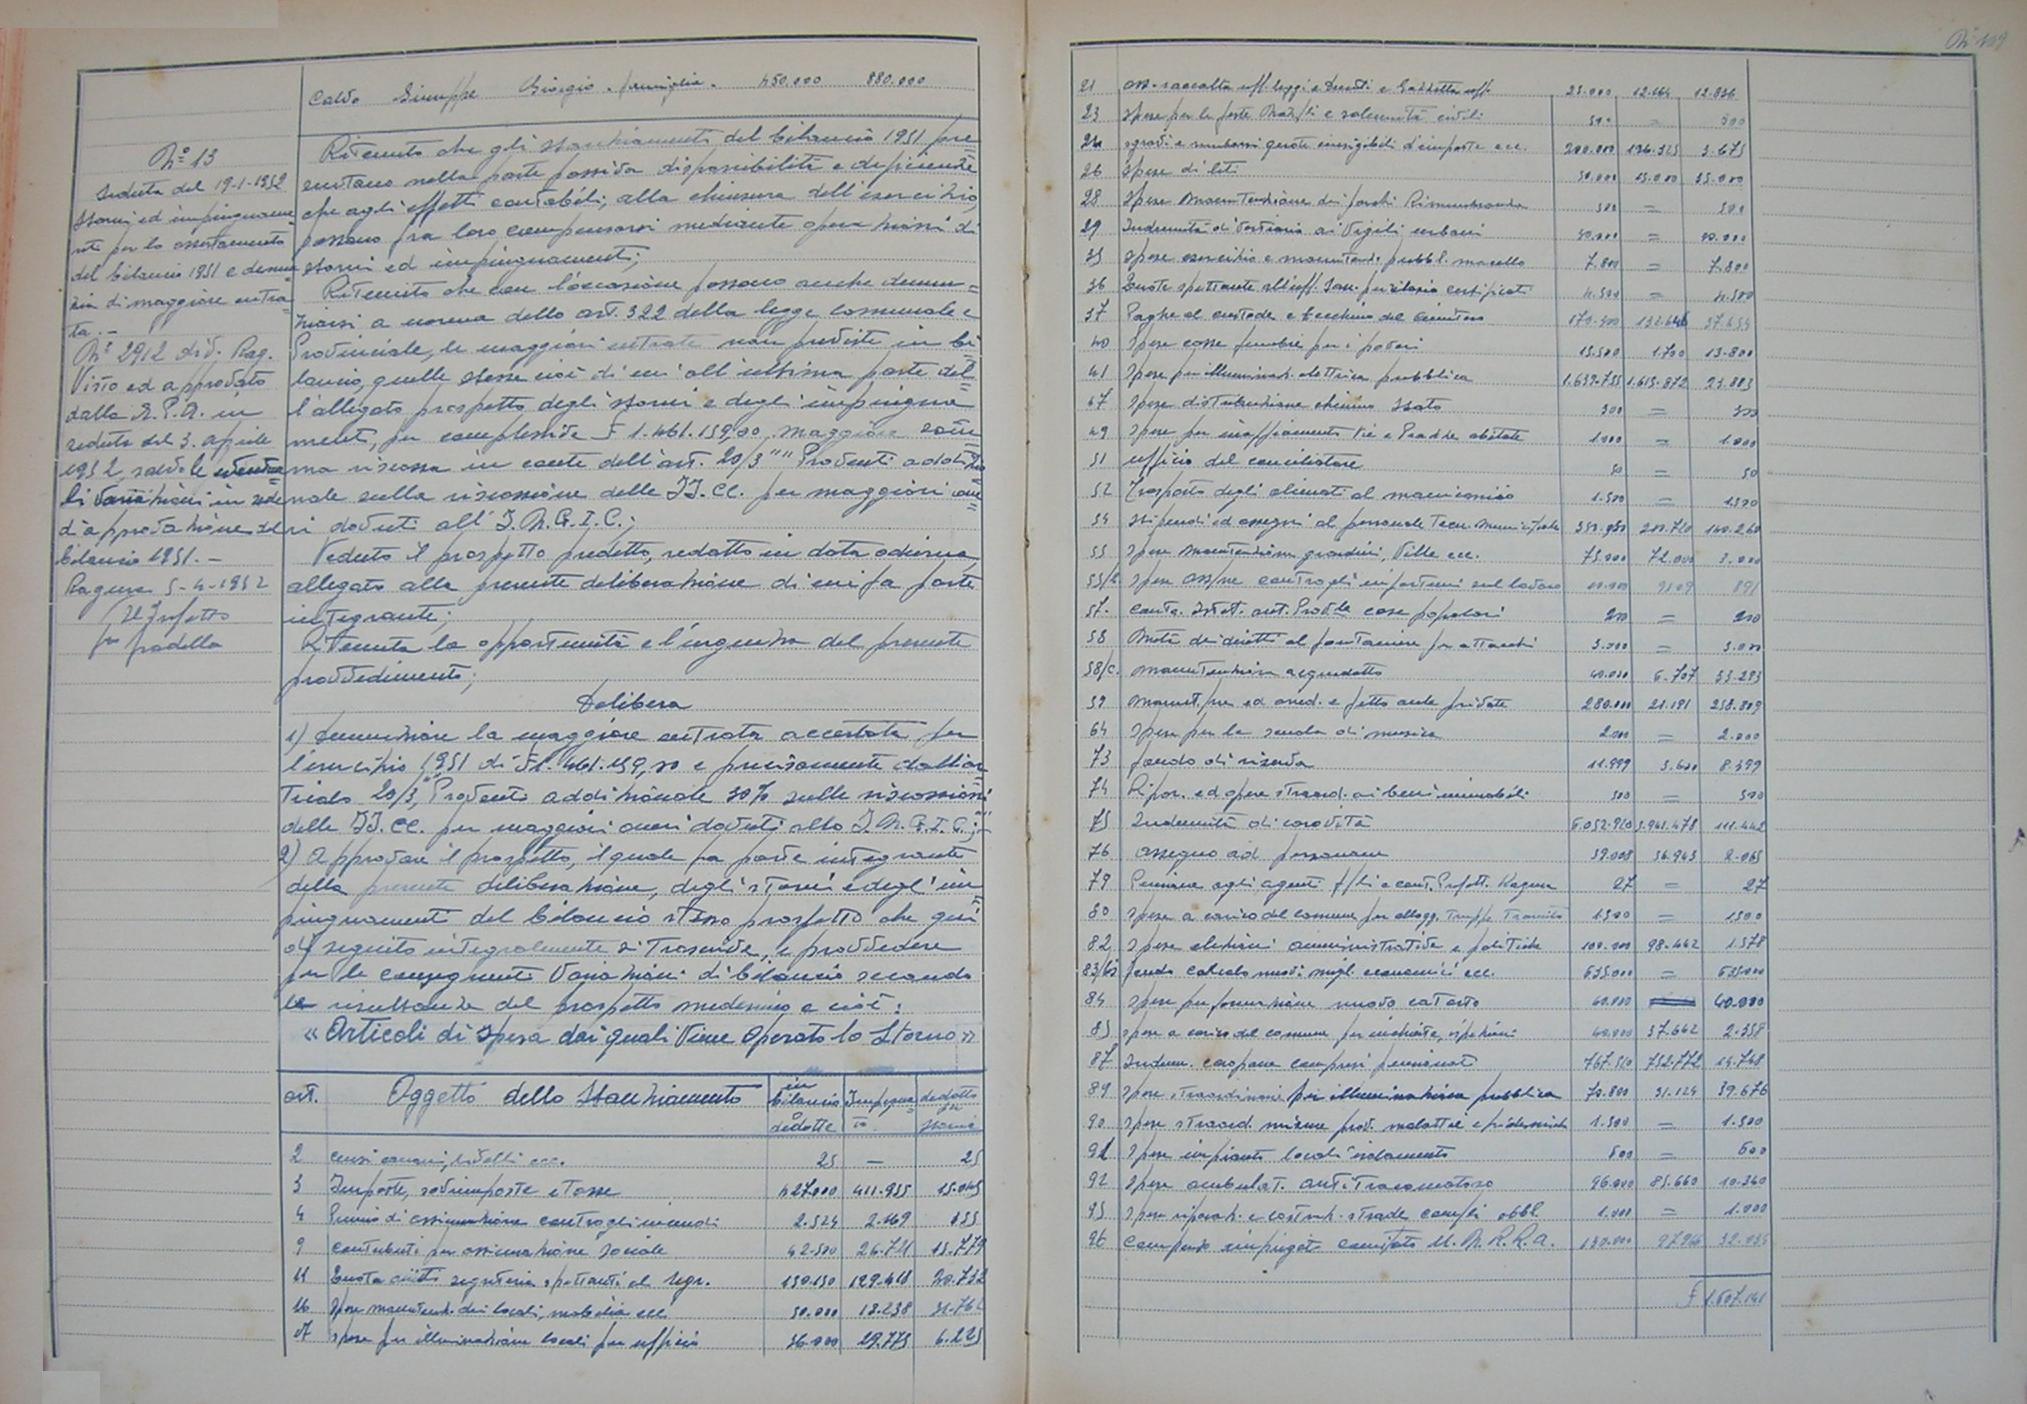 Calvo Giuseppe Giorgio - famiglia - 450.000 880.000
N° 13
Seduta del 19-1-1952
Storni ed impinguame
nti per lo assestamento
del bilancio 1951 e denun
zia di maggiore entra
ta. -
N° 2912 div. Rag.
Visto ed approvato
dalla G.P.A. in
seduta del 3. aprile
1952, salvo le eventua
li variazioni in sede
d'approvazione del
bilancio 1951. -
Ragusa 5-4-1952
Il Prefetto
Ritenuto che gli stanziamenti del bilancio 1951 pre
sentano nella parte passiva disponibilità e deficienze
che agli effetti contabili, alla chiusura dell'esercizio,
possono fra loro compensarsi mediante operazioni di
storni ed impinguamenti;
Ritenuto che con l'occasione possono anche denun=
ziarsi a norma dello art. 322 della legge comunale e
Provinciale, le maggiori entrate non previste in bi
lancio, quelle stesse cioè di cui all'ultima parte del
l'allegato prospetto degli storni e degli impingua
menti, per complessive £ 1.461.159,00, maggiore som
ma riscossa in conto dell'art. 20/3 "" Proventi addizio
nale sulla riscossione delle II.CC. per maggiori one
ri dovuti all'I.N.G.I.C.;
Veduto il prospetto predetto, redatto in data odierna,
allegato alla presente deliberazione di cui fa parte
integrante;
Ritenuta la opportunità e l'urgenza del presente
provvedimento;
Delibera
1) Denunziare la maggiore entrata accertata per
l'esercizio 1951 di £ 1.461.159,00 e precisamente dall'ar
ticolo 20/3, "Proventi addizionale 50% sulle riscossioni
delle II.CC. per maggiori oneri dovuti allo I.N.G.I.C.;""
2) Approvare il prospetto, il quale fa parte integrante
della presente deliberazione, degli storni e degli im
pinguamenti del bilancio stesso prospetto che qui
di seguito integralmente si trascrive, e provvedere
per le conseguenti variazioni di bilancio secondo
le risultanze del prospetto medesimo e cioè:
« Articoli di Spesa dai quali Viene Operato lo Storno »
art. Oggetto dello Stanziamento in bilancio o dedotte Impegna to. dedotto per storni
2 Censi canoni, livelli ecc. 25 — 25
3 Imposte, sovrimposte e tasse 427.000 411.955 15.045
4 Premio di assicurazione contro gli incendi 2.524 2.169 355
9 Contributi per assicurazione sociale 42.500 26.721 15.779
11 Quota diritti segreteria spettanti al segr. 150.150 129.418 20.732
16 Spese manutenz. dei locali, mobilia ecc. 50.000 18.238 31.762
17 Spese per illuminazione locali per ufficio 36.000 29.775 6.225
21 Ass. raccolta uff. leggi e decreti e Gazzetta uff. 25.000 12.164 12.836
23 Spese per le feste Naz/li e solennità civili 500 = 500
24 Sgravi e rimborsi quote inesigibili d'imposte ecc. 200.000 196.325 3.675
26 Spese di liti 50.000 15.000 35.000
28 Spese Manutenzione dei parchi Rimembranza 500 = 500
29 Indennità di vestiario ai Vigili urbani 40.000 = 40.000
35 Spese esercizio e manutenz. pubbl. macello 7.800 = 7.800
36 Quote spettante all'uff. San. per rilascio certificati 4.500 = 4.500
37 Paghe al custode e becchino del cimitero 170.300 132.646 37.654
40 Spese casse funebre per i poveri 15.500 1.700 13.800
41 Spese per illuminaz. elettrica pubblica 1.639.755 1.615.872 23.883
47 Spese distribuzione chinino Stato 300 = 300
49 Spese per inaffiamento Vie e Piazze abitate 1.000 = 1.000
51 Ufficio del conciliatore 50 = 50
52 Trasporto degli alienati al manicomio 1.500 = 1500
54 Stipendi ed assegni al personale Tecn. Municipale 350.980 210.720 140.260
55 Spese Manutenzione giardini, Ville ecc. 75.000 72.000 3.000
55/2 Spese Ass/ne contro gli infortuni sul lavoro 10.000 9109 891
57. Contr. Istit. aut. Prov/le case popolari 200 = 200
58 Metà dei diritti al fontaniere per attacchi 3.000 = 3.000
58/c. Manutenzione acquedotto 40.000 6.707 33.293
59 280.000 21.191 258.809
64 Spese per la scuola di musica 2.000 = 2.000
73 Fondo di riserva 11.999 3.600 8.399
74 Ripar. ed opere straord. ai beni immobili 500 = 500
75 Indennità di carovita 6.052.920 5.941.478 111.442
76 Assegno ad personam 39.008 36.943 2.065
79 Pensione agli agenti f/li e cont. Prefett. Ragusa 27 = 27
80 Spese a carico del comune per allogg. Truppe Transito 1.500 = 1500
82 Spese elezioni amministrative e politiche 100.000 98.442 1.578
83/bis Fondo calcolo nuovi migl. economici ecc. 635.000 = 635.000
84 Spese per formazione nuovo catasto 40.000 40.000
85 Spese a carico del comune per inchieste, ispezioni 40.000 37.642 2.358
87 Indenn. caropane compresi pensionati 767.520 752.772 14.748
89 Spese straordinarie per illuminazione pubblica 70.800 31.124 39.676
90 Spese straord. misure prov. malattie epidemiche 1.500 = 1.500
91 Spese impianto locali isolamento 600 = 600
92 Spese ambulat. anti Tracomatoso 96.000 85.660 10.340
95 Spese riparaz. e costruz. strade comp/li obbl. 1.000 = 1.000
96 Compenso impiegati comitato U.N.R.R.A. 130.000 97.966 32.034
£ 1.607.141